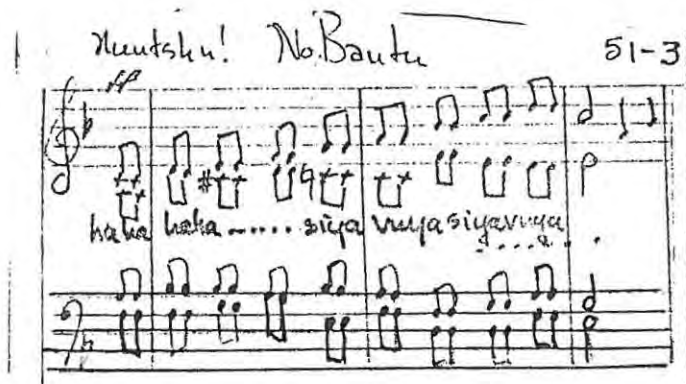 No. Bantu 51-3
ff
haha haha ..... siya vuya siyavuya